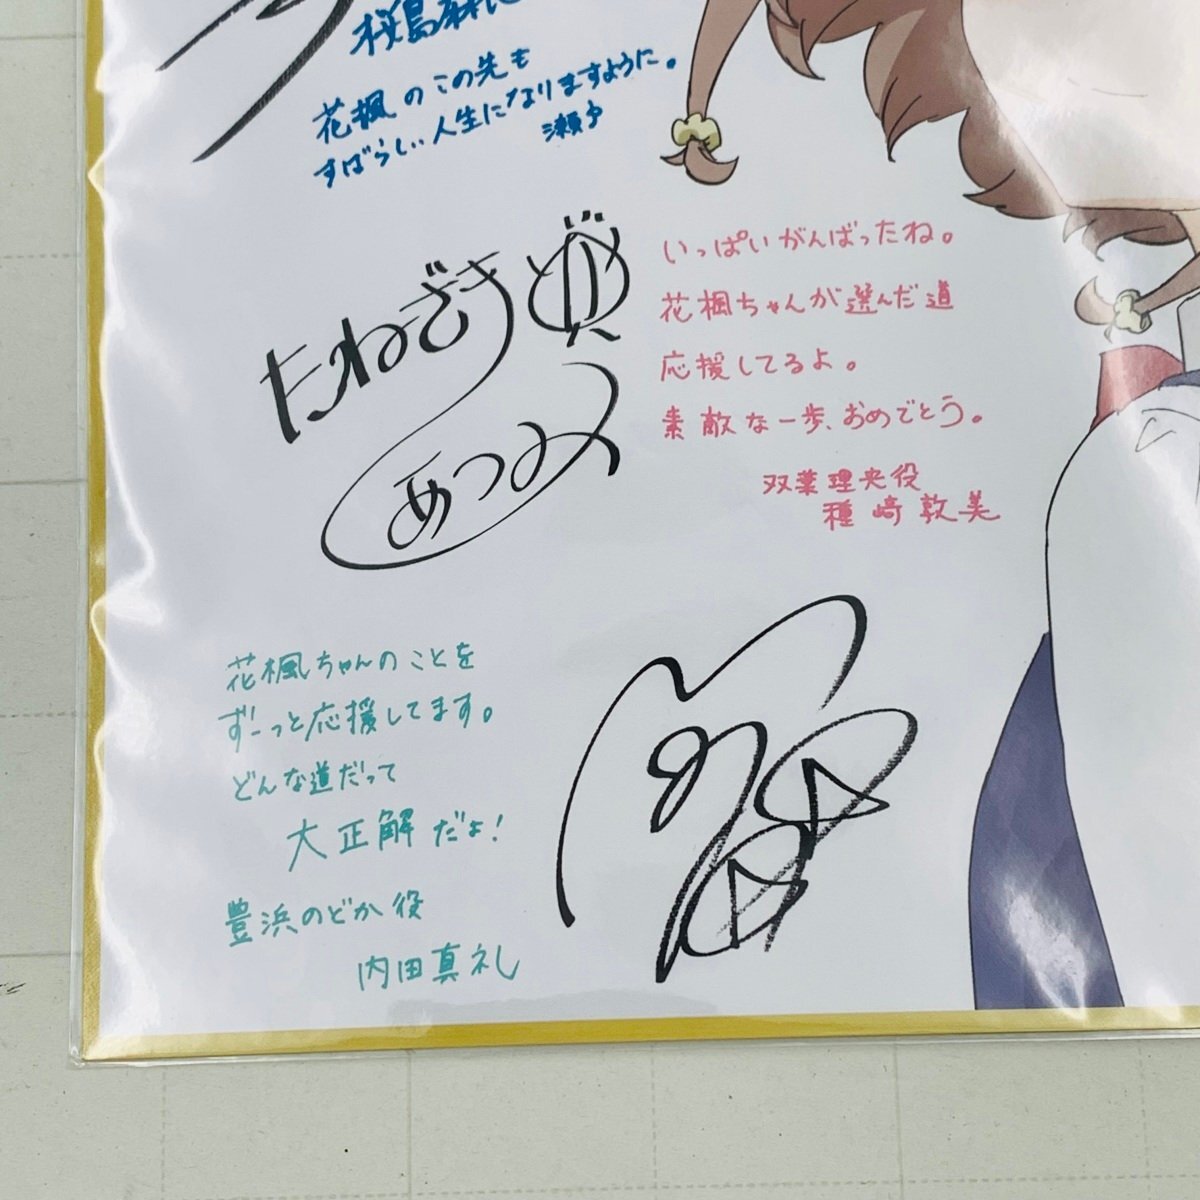 桜島麻衣
花楓のこの先も
すばらしい人生になりますように。
瀬戸
たねざき
あつみ
いっぱいがんばったね。
花楓ちゃんが選んだ道
応援してるよ。
素敵な一歩、おめでとう。
双葉理央役
種﨑敦美
花楓ちゃんのことを
ずーっと応援してます。
どんな道だって
大正解だよ!
豊浜のどか役
内田真礼